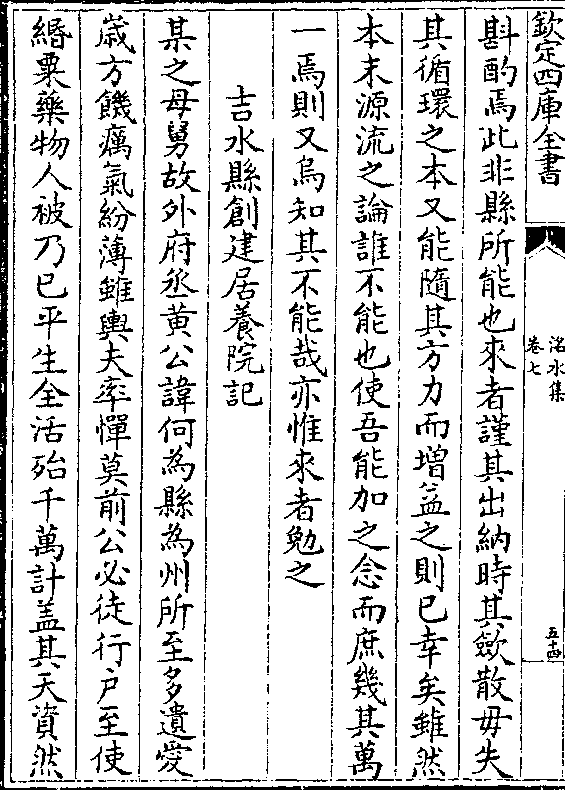 欽定四庫全書
洺水集
卷七
五十四
斟酌焉此非縣所能也來者謹其出納時其斂散毋失
其循環之本又能隨其方力而增益之則已幸矣雖然
本末源流之論誰不能也使吾能加之念而庶幾其萬
一焉則又烏知其不能哉亦惟來者勉之
吉水縣創建居養院記
某之母舅故外府丞黃公諱何為縣為州所至多遺愛
嵗方饑癘氣紛薄雖輿夫率憚莫前公必徒行户至使
緡粟藥物人被乃已平生全活殆千萬計盖其天資然